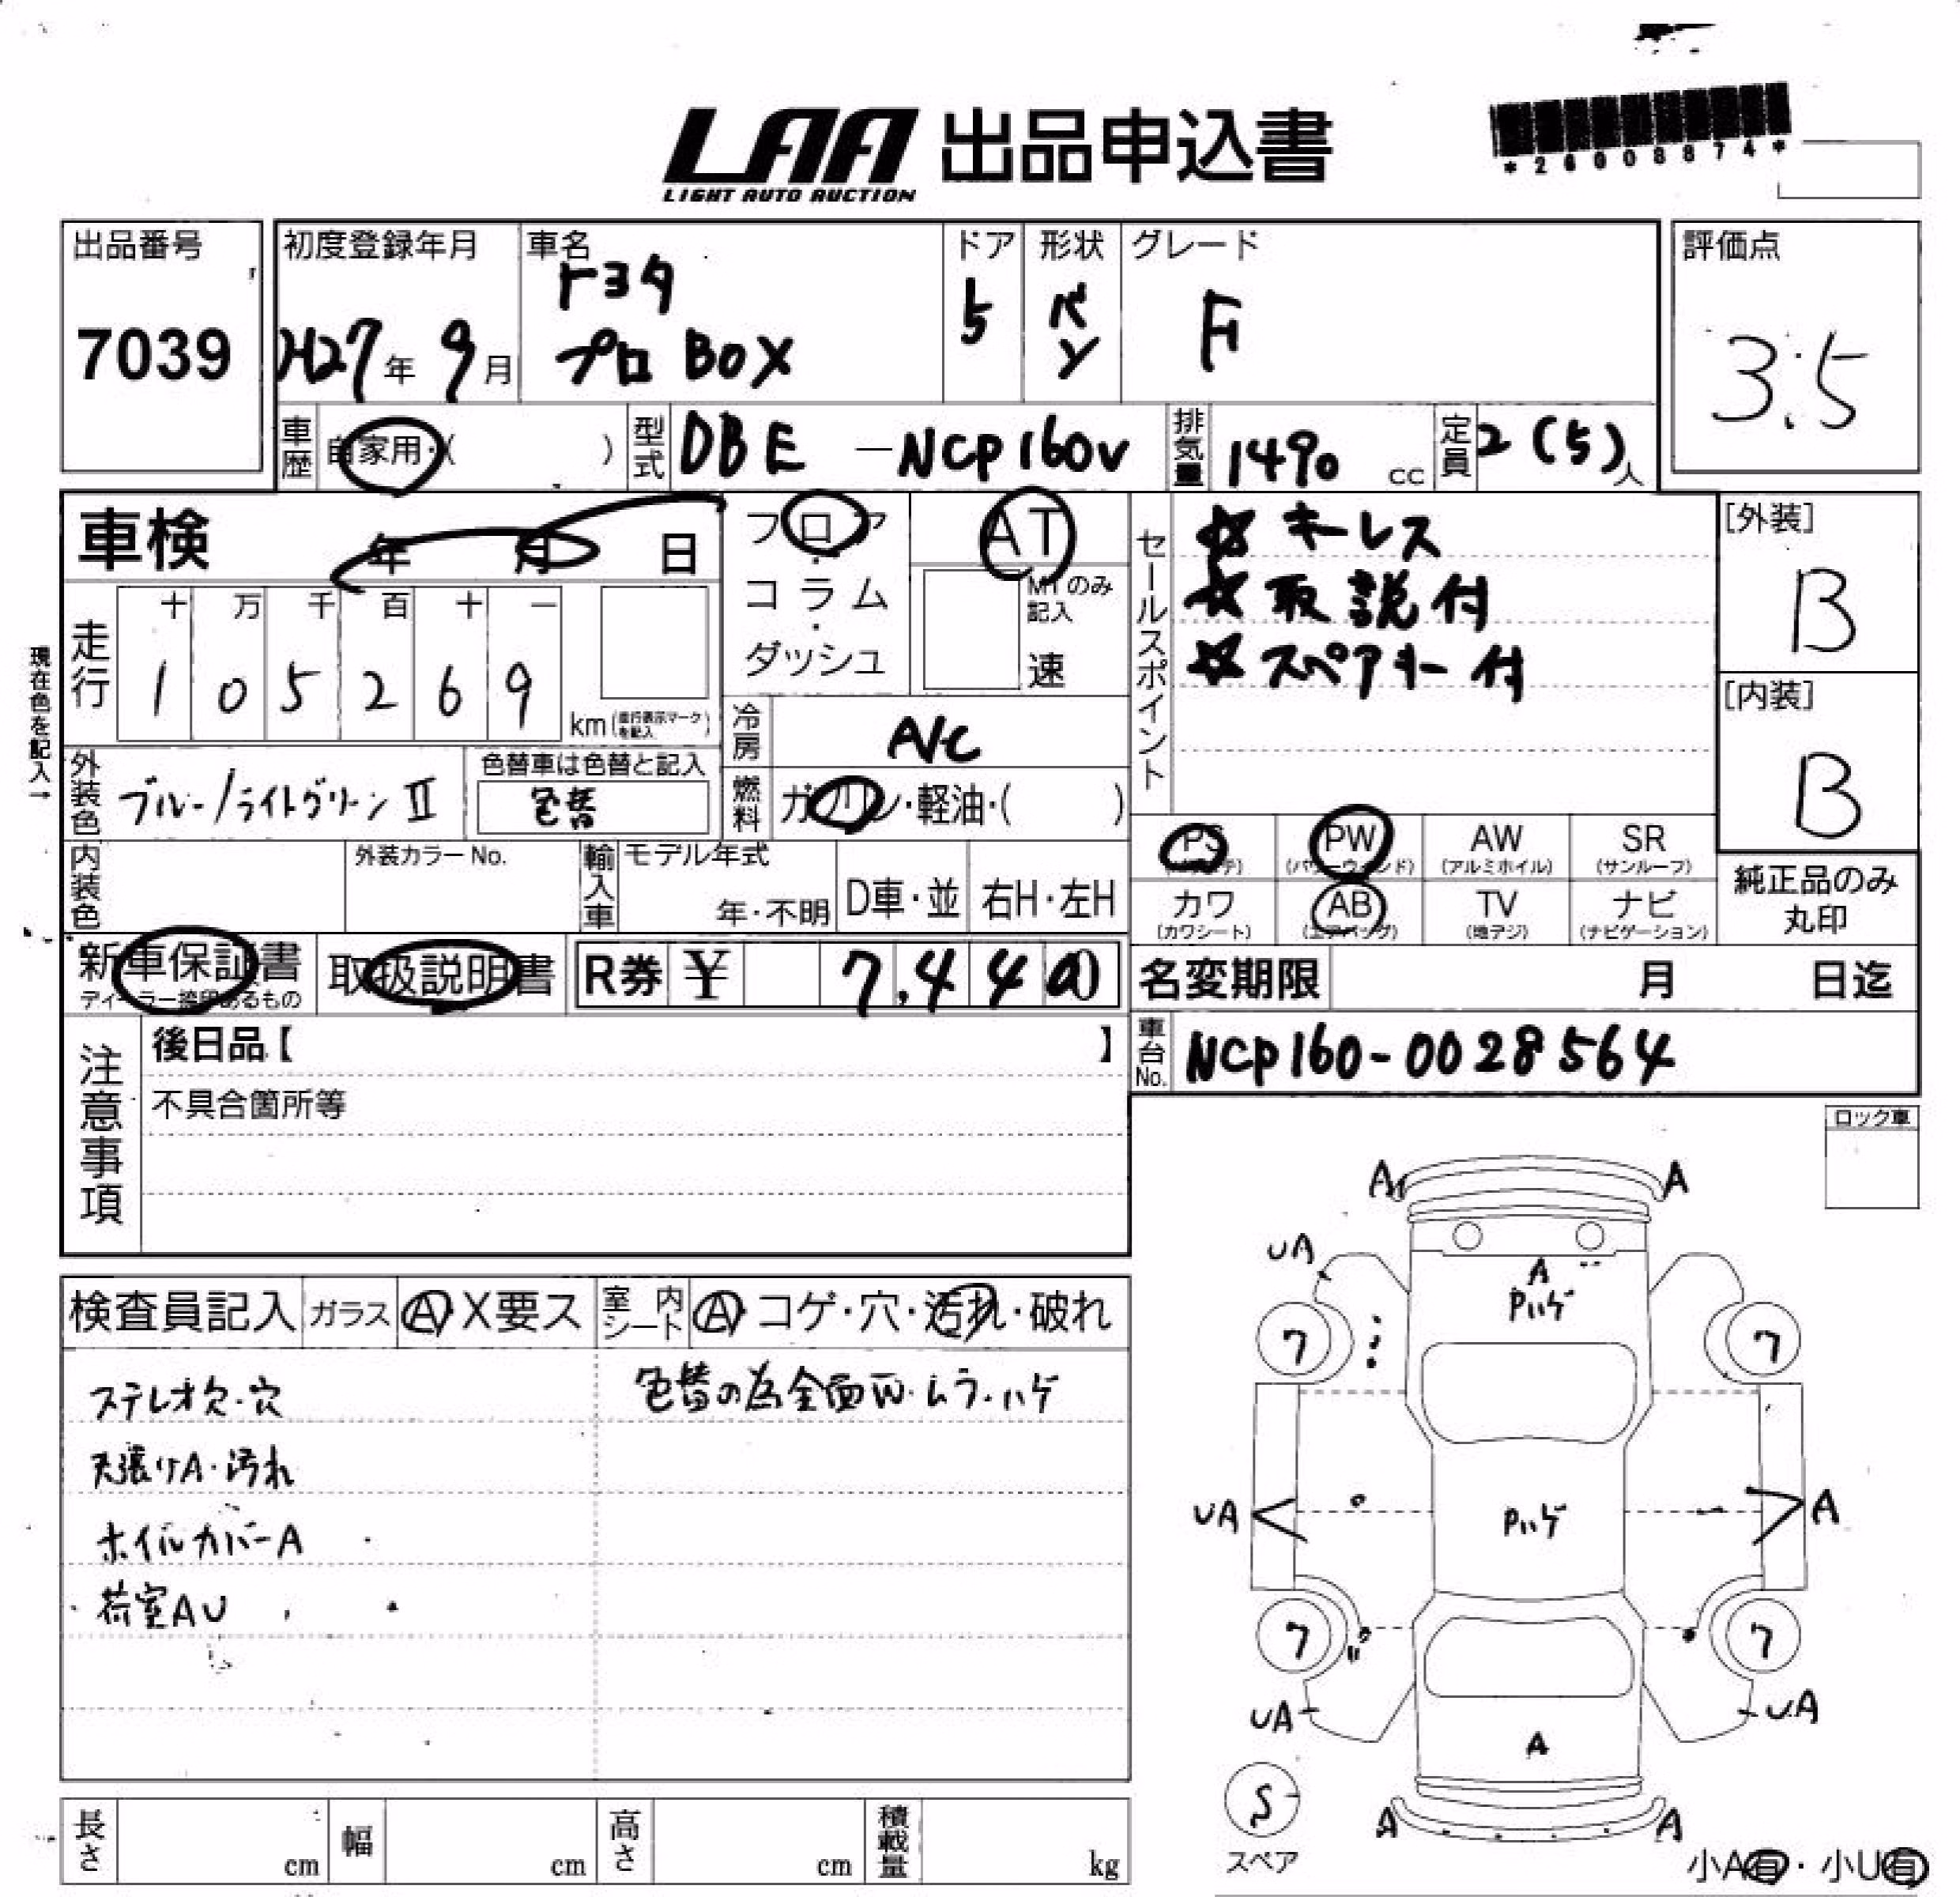 LAA 出品申込書
LIGHT AUTO AUCTION
*26008874*
出品番号
7039
初度登録年月
H27年 9月
車名
トヨタ
プロ BOX
ドア
5
形状
バン
グレード
F
評価点
3.5
車歴
自家用・( )
型式
DBE -NCP160V
排気量
1490 cc
定員
2(5)人
車検 年 月 日
フロア
・
コラム
・
ダッシュ
AT
MTのみ
記入
速
セールスポイント
☆ キーレス
☆ 取説付
☆ スペアキー付
[外装]
B
[内装]
B
現在色を記入→
走行
十 万 千 百 十 一
1 0 5 2 6 9
km (走行表示マークを記入)
冷房
A/C
外装色
ブルー/ライトグリーンⅡ
色替車は色替と記入
色替
燃料
ガソリン・軽油・( )
PS
PW
(パワーウィンド)
AW
(アルミホイル)
SR
(サンルーフ)
カワ
(カワシート)
AB
(エアバッグ)
TV
(地デジ)
ナビ
(ナビゲーション)
純正品のみ
丸印
内装色
外装カラーNo.
輸入車
モデル年式
年・不明
D車・並
右H・左H
新車保証書
ディーラー捺印あるもの
取扱説明書
R券 ¥ 7,440
名変期限 月 日迄
車台No.
NCP160-0028564
注意事項
後日品【 】
不具合箇所等
ロック車
検査員記入
ガラス
A・X要ス
室内シート
A・コゲ・穴・汚れ・破れ
ステレオ欠・穴
天張りA・汚れ
ホイルカバーA
荷室AU
色替の為全面W・ムラ・ハゲ
A A
UA
A
Pハゲ
7 7
UA
Pハゲ
A
7 7
UA
UA
A
S
スペア
A A
小A有・小U有
長さ cm
幅 cm
高さ cm
積載量 kg